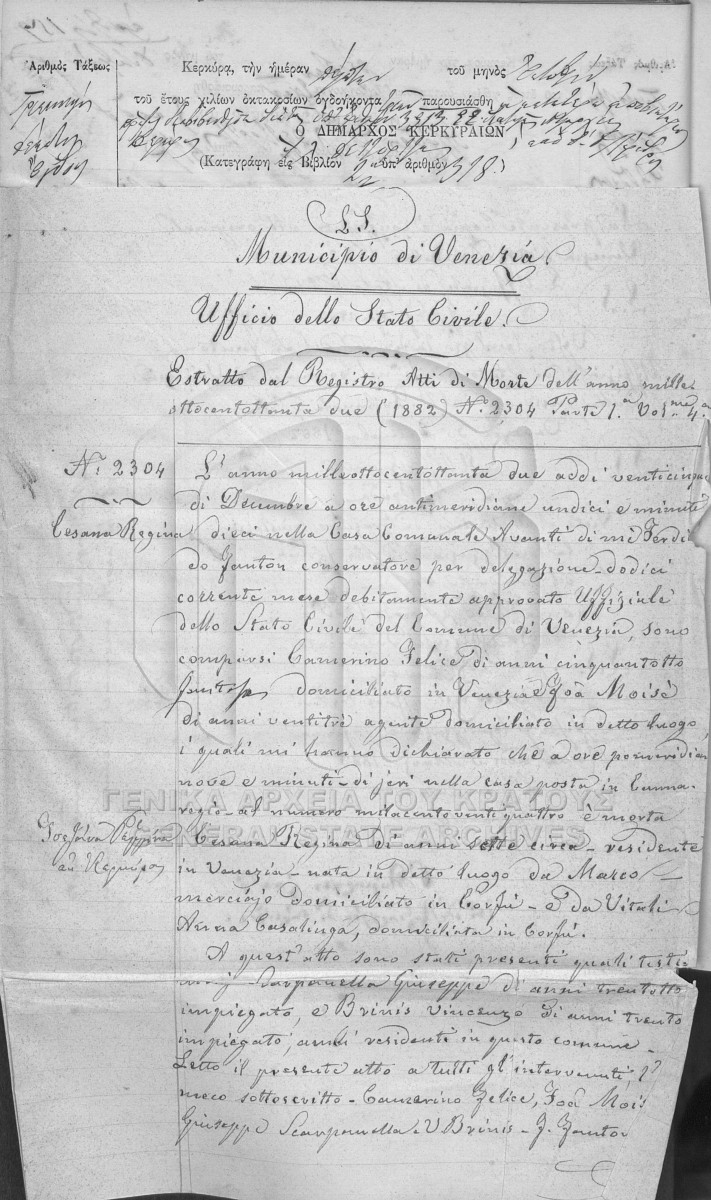 Ἀριθμὸς Τάξεως
Κερκύρᾳ, τὴν ἡμέραν τοῦ μηνὸς
τοῦ ἔτους χιλίων ὀκτακοσίων ὀγδοήκοντα παρουσιάσθη
Ὁ ΔΗΜΑΡΧΟΣ ΚΕΡΚΥΡΑΙΩΝ
(Κατεγράφη εἰς Βιβλίον ὑπ' ἀριθμὸν 318.)
L.S.
Municipio di Venezia.
Ufficio dello Stato Civile.
Estratto dal Registro Atti di Morte dell'anno mille
ottocentottanta due (1882) N.º 2304 Parte 1.a Vol.me 4.o
N.º 2304
Cesana Regina
L'anno milleottocentottanta due addi venticinque
di Decembre a ore antimeridiane undici e minuti
dieci nella Casa Comunale Avanti di me Ferdi
do Zanton conservatore per delegazione dodici
corrente mese debitamente approvato Uffiziale
dello Stato Civile del Comune di Venezia, sono
comparsi Camerino Felice di anni cinquantotto
domiciliato in Venezia e Foà Moisè
di anni ventitrè agente domiciliato in detto luogo,
i quali mi hanno dichiarato che a ore pomeridiane
nove e minuti - di jeri nella casa posta in Canna
regio - al numero milacentoventiquattro è morta
Cesana Regina di anni sette circa - residente
in Venezia - nata in detto luogo da Marco
merciajo domiciliato in Corfù - e da Vitali
Anna Casalinga, domiciliata in Corfù.
A quest'atto sono stati presenti quali testi
monj Scarpanella Giuseppe di anni trentotto
impiegato, e Brinis Vincenzo di anni trenta
impiegato, ambi residenti in questo comune.
Letto il presente atto a tutti gl'intervenuti,
meco sottoscritto - Camerino Felice, Foà Moisè
Giuseppe Scarpanella - V Brinis - F. Zanton
ΓΕΝΙΚΑ ΑΡΧΕΙΑ ΤΟΥ ΚΡΑΤΟΥΣ
GENERAL STATE ARCHIVES